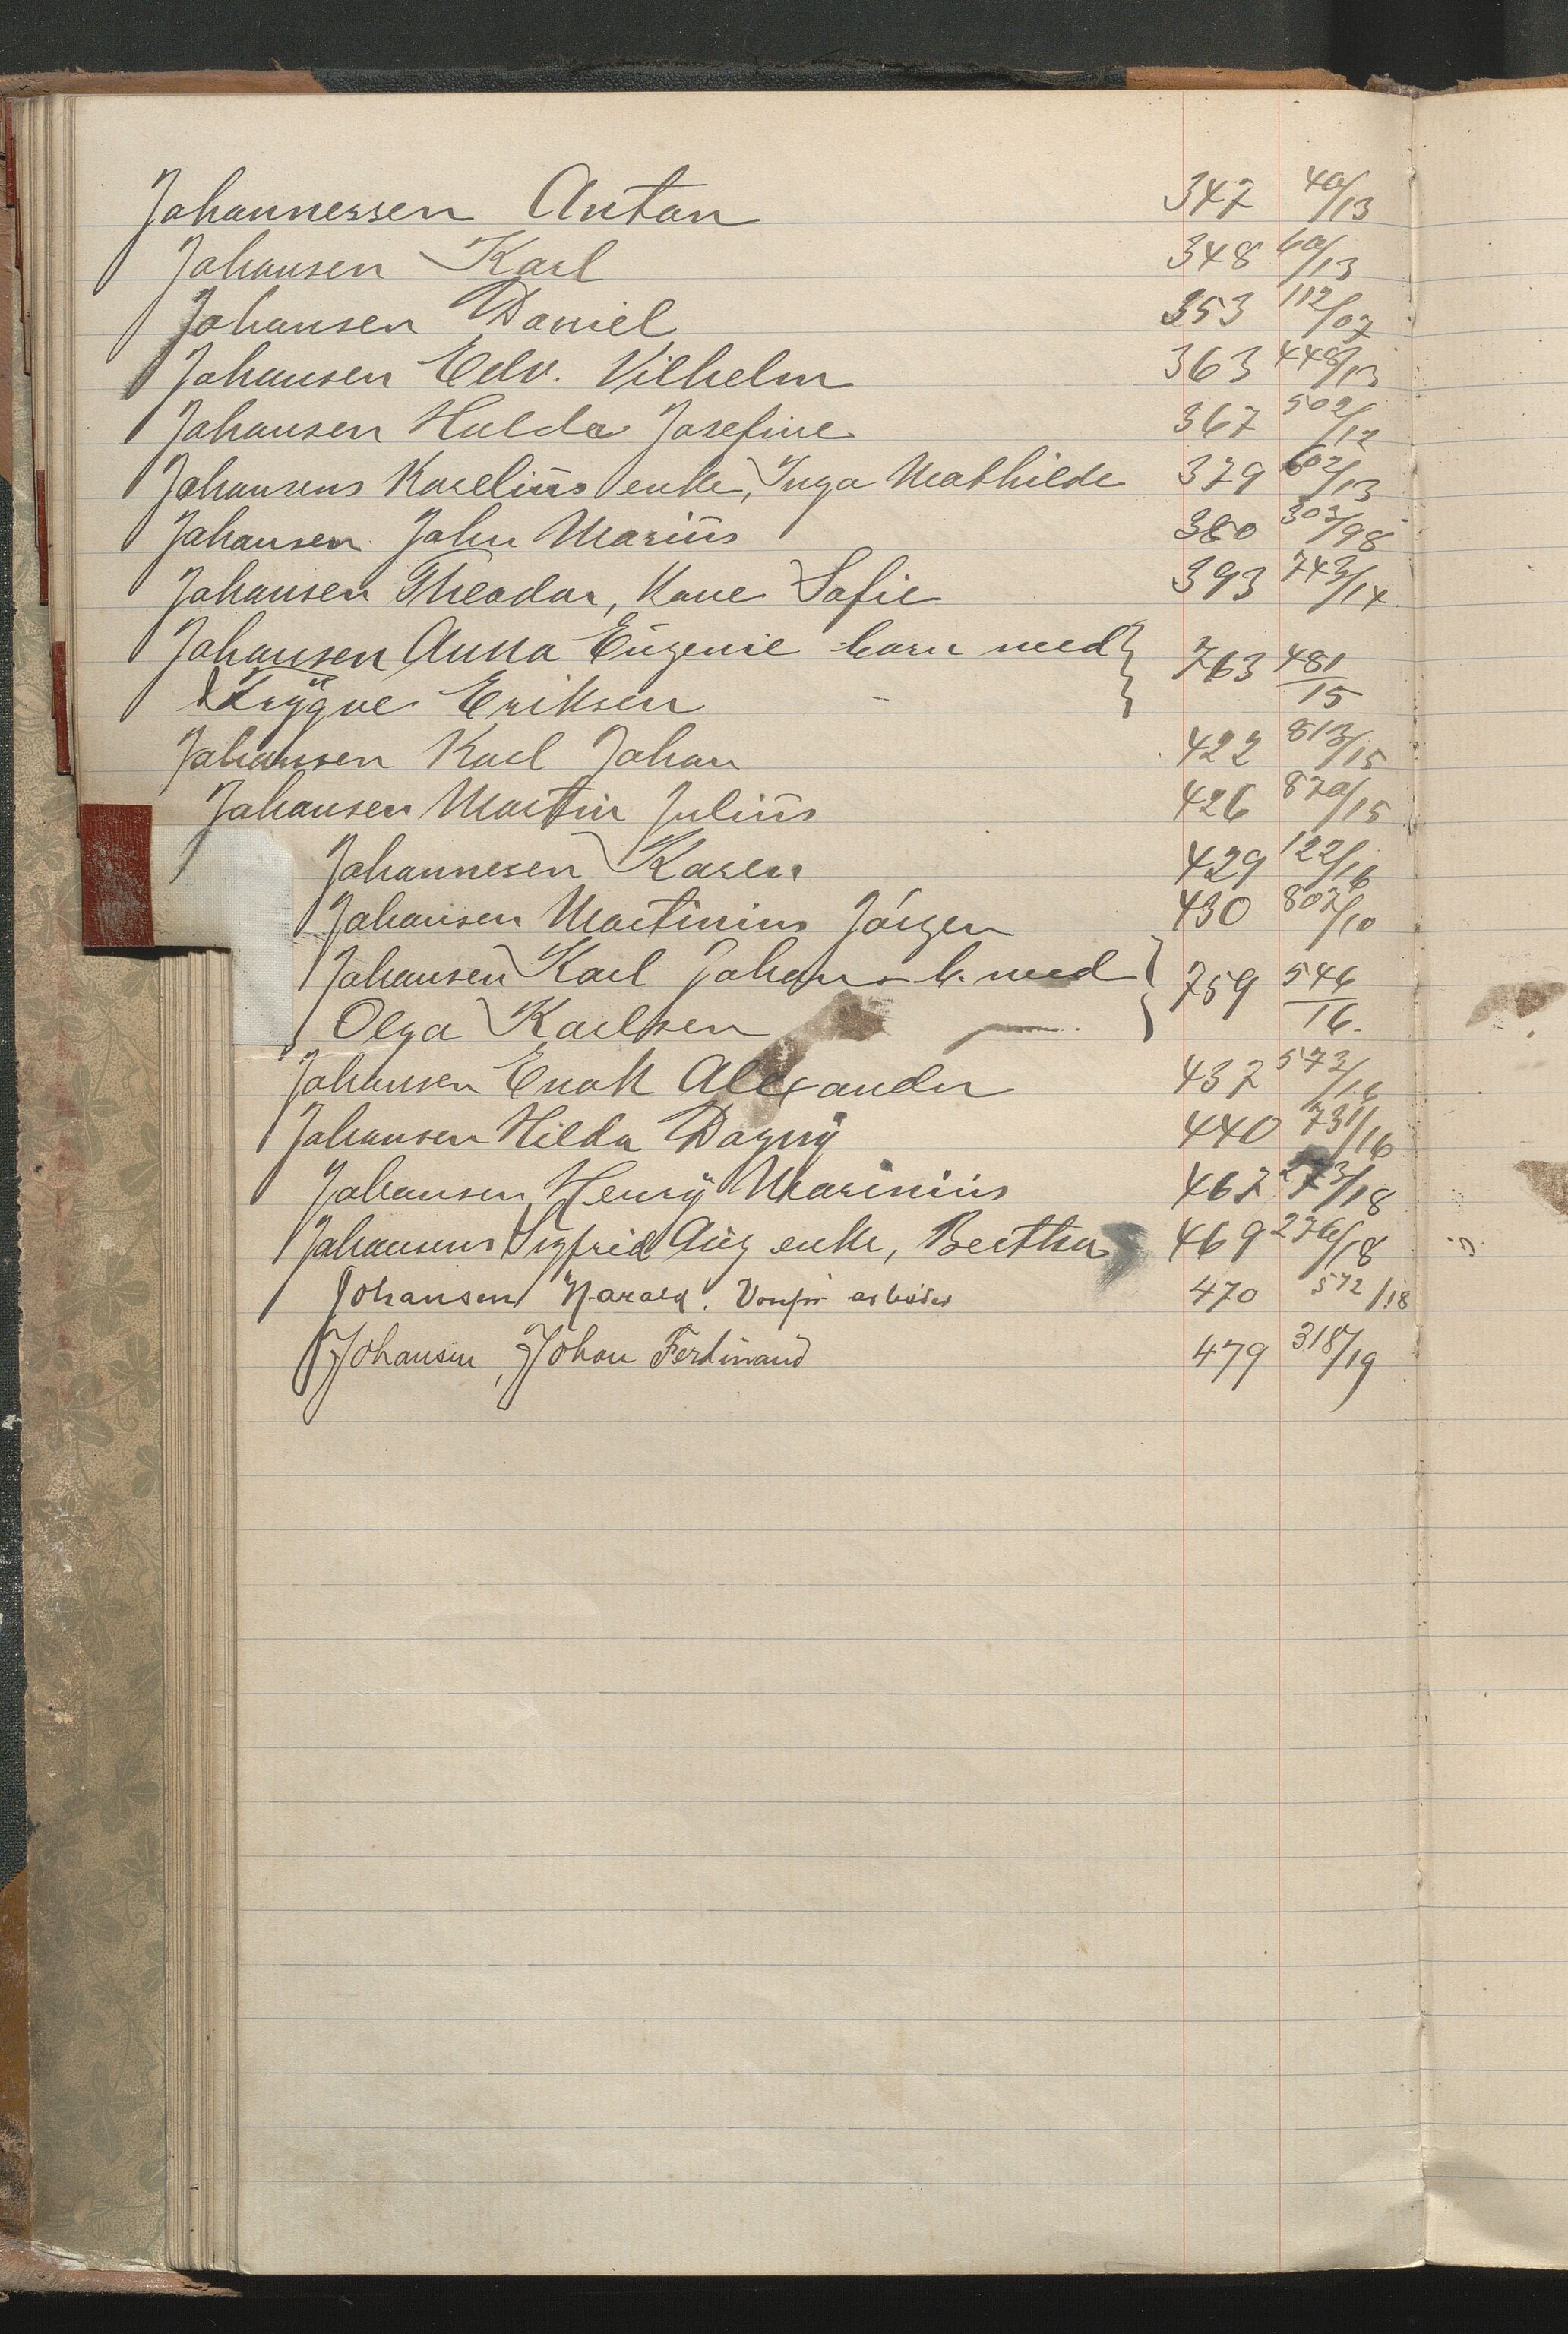 Johannessen Anton 347 40/13
Johansen Karl 348 60/13
Johansen Daniel 353 112/07
Johansen Edv. Vilhelm 363 448/13
Johansen Hulda Josefine 367 502/12
Johansens Karelius enke, Inga Mathilde 379 602/13
Johansen John Marius 380 302/98
Johansen Theodor, Kone Sofie 393 743/14
Johansen Anna Eugenie barn med
Trygve Eriksen 763 481/15
Johanssen Karl Johan 422 813/15
Johansen Martin Julius 426 870/15
Johannesen Karen 429 122/16
Johansen Martinius Jörgen 430 802/10
Johansen Karl Johan - b. med
Olga Karlsen 759 546/16.
Johansen Enok Alexander 437 573/16
Johansen Hilda Dagny 440 731/16
Johansen Henry Marinius 467 273/18
Johansens Sigfrid Aug enke, Berthea 469 276/18
Johansen Harald. 470 572/18
Johansen, Johan Ferdinand 479 318/19